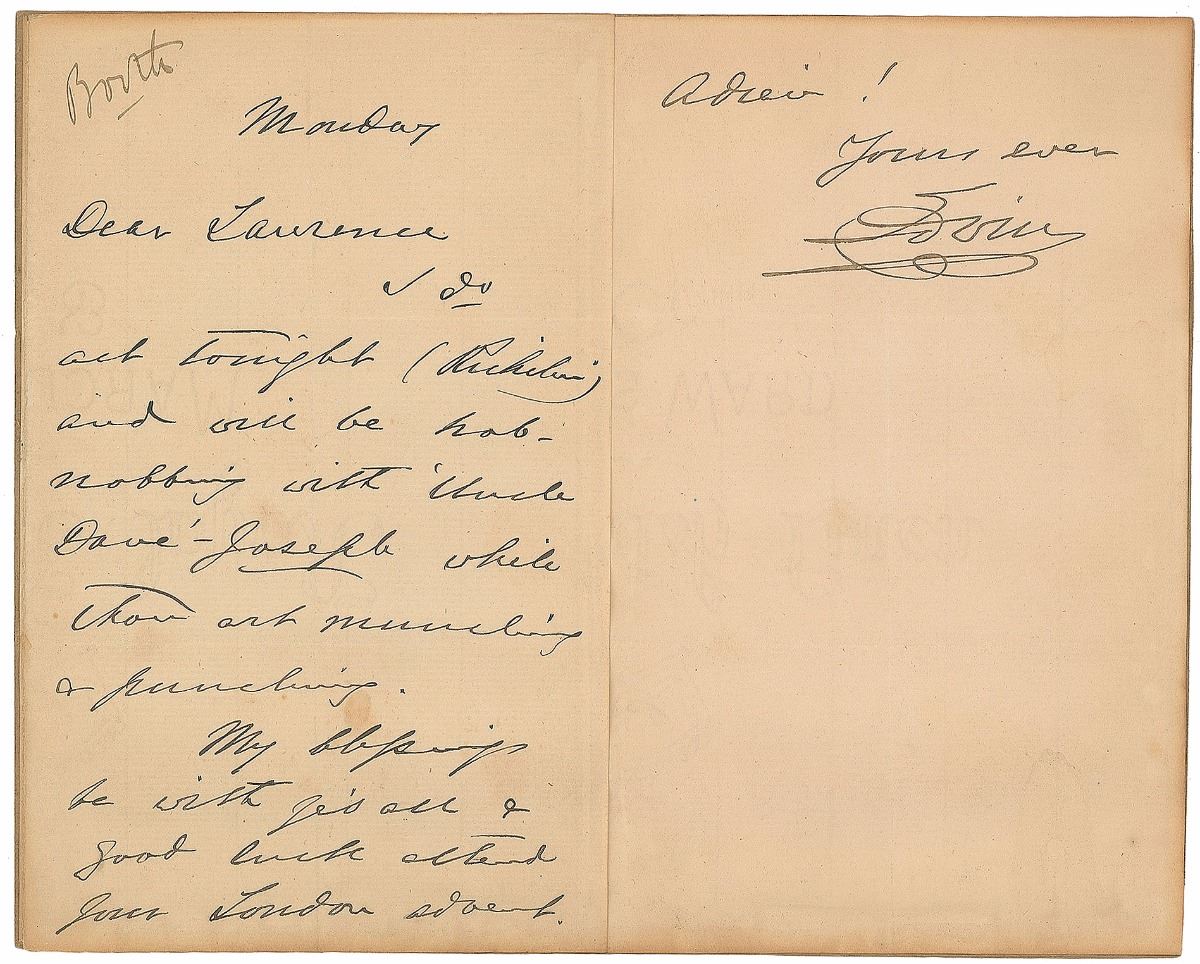 Booth
Monday
Dear Lawrence
I do
act tonight (Richelieu)
and will be hob-
nobbing with 'Uncle
Dave'-Joseph while
thou art munching
& punching.
My blessings
be with ye's all &
good luck attend
your London advent.
Adieu!
Yours ever
Edwin